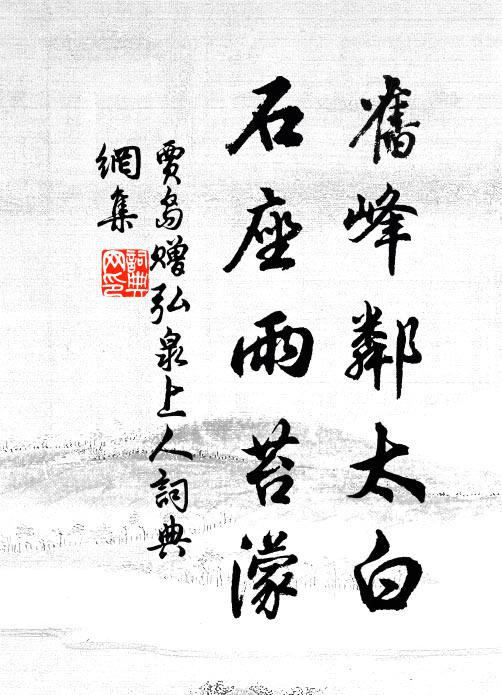 舊峰鄰太白
石座雨苔濛
賈島贈弘泉上人詞典
網集
詞典
网印